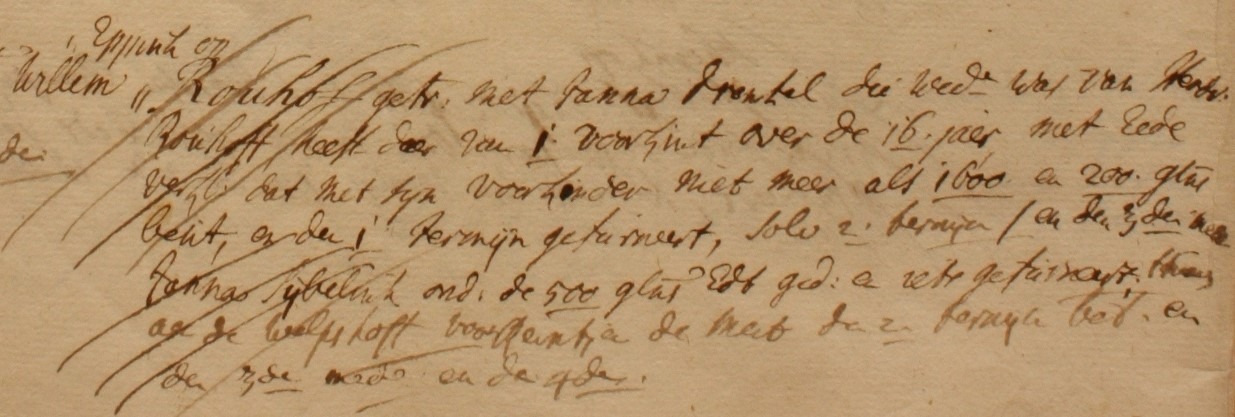 Eppink op
Willem " Rouhoff getr. met Janna Drenthel die wede was van Herm.
Rouhoff heeft daer van 1 voorkint over de 16 jaer met Eede
verkl. dat met syn voorkinder niet meer als 1600 en 200 glns
besit, en den 1 termijn gefurneert, solv 2 termijn / en den 3den mede
den Jannes Sybelink ond. de 500 glns Edt ged: en iets gefurneert,
de voorkintjen de met den 2n termijn bet. en
den 3de mede en de 4de.